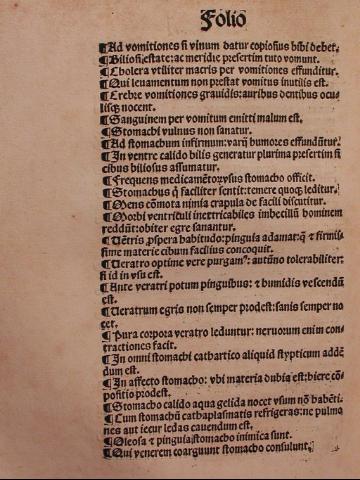 Folio
¶Ad vomitiones si vinum datur copiosius bibi debet.
¶Biliosi, estate: ac meridie presertim tuto vomunt.
¶Cholera vtiliter macris per vomitiones effunditur.
¶Qui leuamentum non prestat vomitus inutilis est.
¶Crebre vomitiones grauidis: auribus dentibus ocu-
lisqȝ nocent.
¶Sanguinem per vomitum emitti malum est.
¶Stomachi vulnus non sanatur.
¶Ad stomachum infirmum: varij humores effundūtur.
¶In ventre calido bilis generatur plurima presertim si
cibus biliosus assumatur.
¶Frequens medicamētorȝ vsus stomacho officit.
¶Stomachus q̄ faciliter sentit: temere quoqȝ leditur.
¶Mens cōmota nimia crapula de facili discutitur.
¶Morbi ventriculi inextricabiles imbecillū hominem
reddūt: obiter egre sanantur.
¶Uētris ꝓspera habitudo: pinguia adamat: q̄ ⁊ firmis-
sime materie cibum facilius concoquit.
¶Ueratro optime vere purgam⁹: autūno tolerabiliter:
si id in vsu est.
¶Ante veratri potum pinguibus: ⁊ humidis vescendū
est.
¶Ueratrum egris non semper prodest: sanis semper no
cet.
¶Pura corpora veratro leduntur: neruorum enim con-
tractiones facit.
¶In omni stomachi cathartico aliquid stypticum addē
dum est.
¶In affecto stomacho: vbi materia dubia est: hiere cō-
positio prodest.
¶Stomacho calido aqua gelida nocet vsum nō habēti.
¶Cum stomachū cathaplasmatis refrigeras: ne pulmo
nes aut iecur ledas cauendum est.
¶Oleosa ⁊ pinguia stomacho inimica sunt.
¶Qui venerem coarguunt stomacho consulunt.